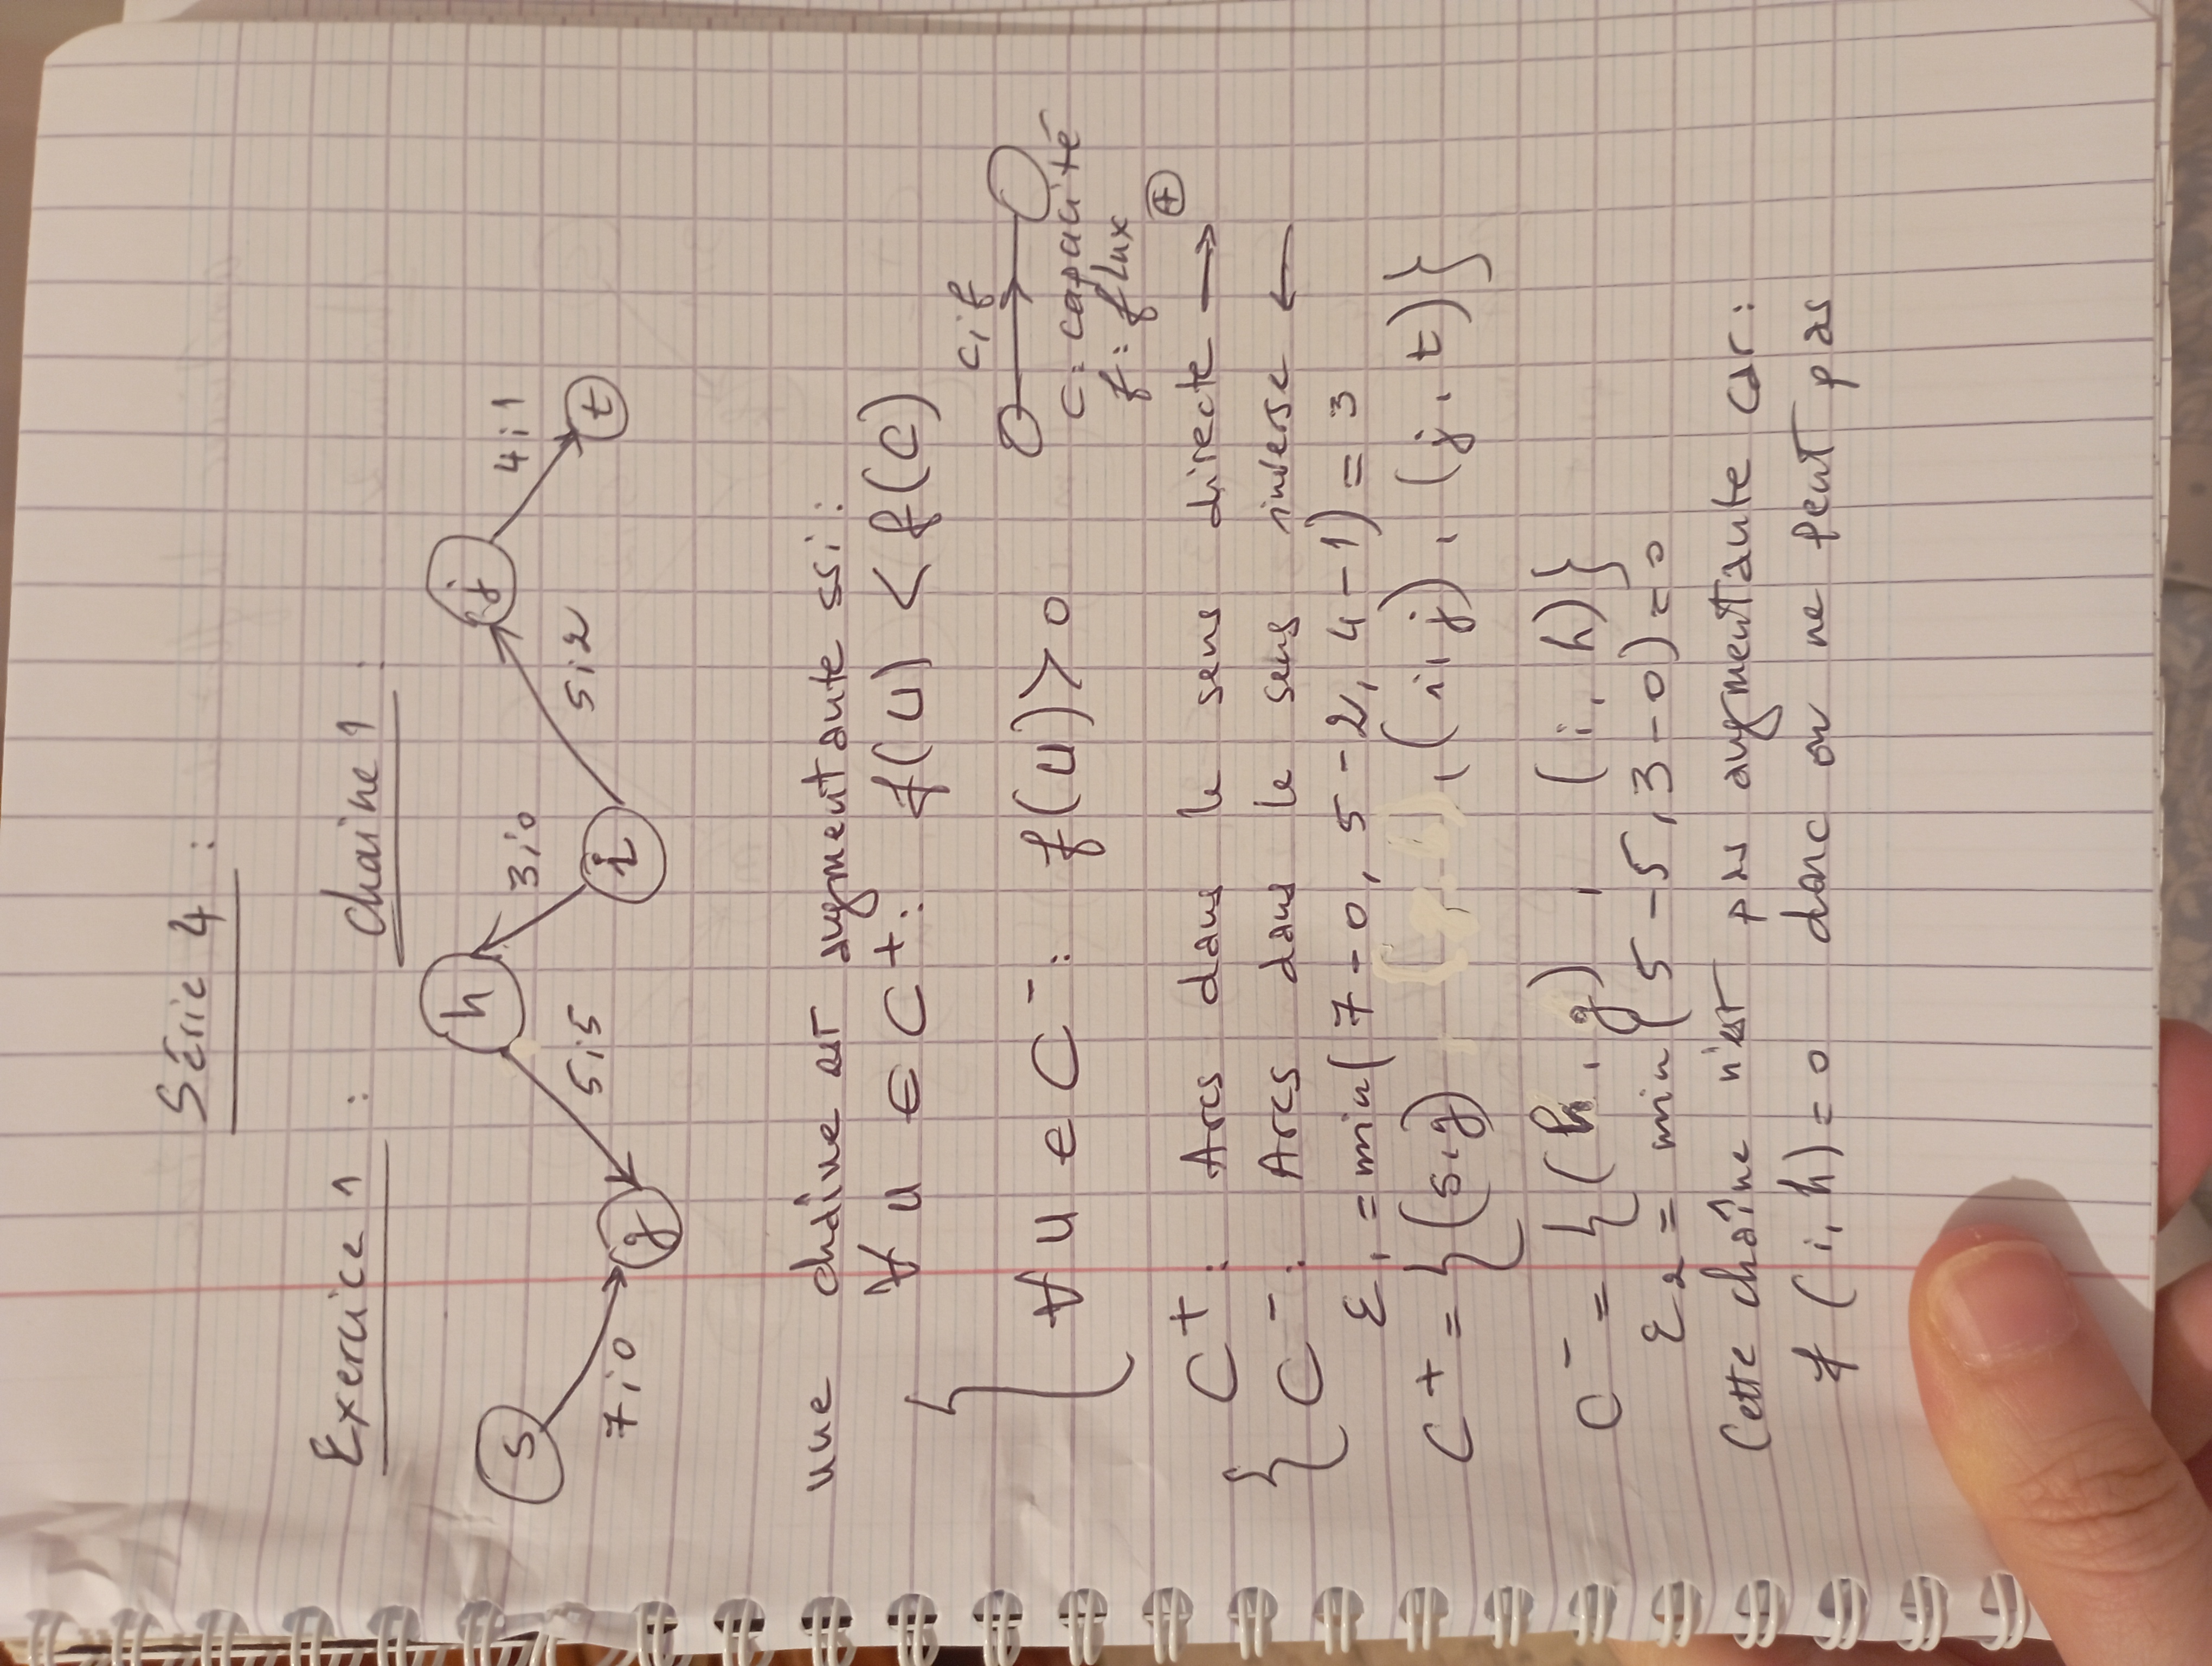 Série 4 :
Exercice 1 : chaine 1 :
s
7;0
g
5;5
h
3;0
i
5;2
j
4;1
t
une chaîne est augmentante ssi :
∀ u ∈ C⁺: f(u) < f(C)
∀ u ∈ C⁻: f(u) > 0
c;f
c: capacité
f: flux
C⁺: Arcs dans le sens directe → ⊕
C⁻: Arcs dans le sens inverse ←
ε₁ = min( 7-0, 5-2, 4-1) = 3
C⁺ = {(s,g) , (i,j), (j,t)}
C⁻ = {(h,g) , (i,h)}
ε₂ = min( 5-5, 3-0) = 0
Cette chaîne n'est pas augmentante car :
f (i,h) = 0 donc on ne peut pas